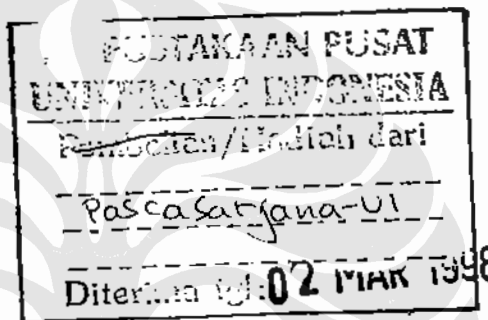 PUSTAKAAN PUSAT
UNIVERSITAS INDONESIA
Pembelian/Hadiah dari
Pascasarjana-UI
Diterima tgl:02 MAR 1998